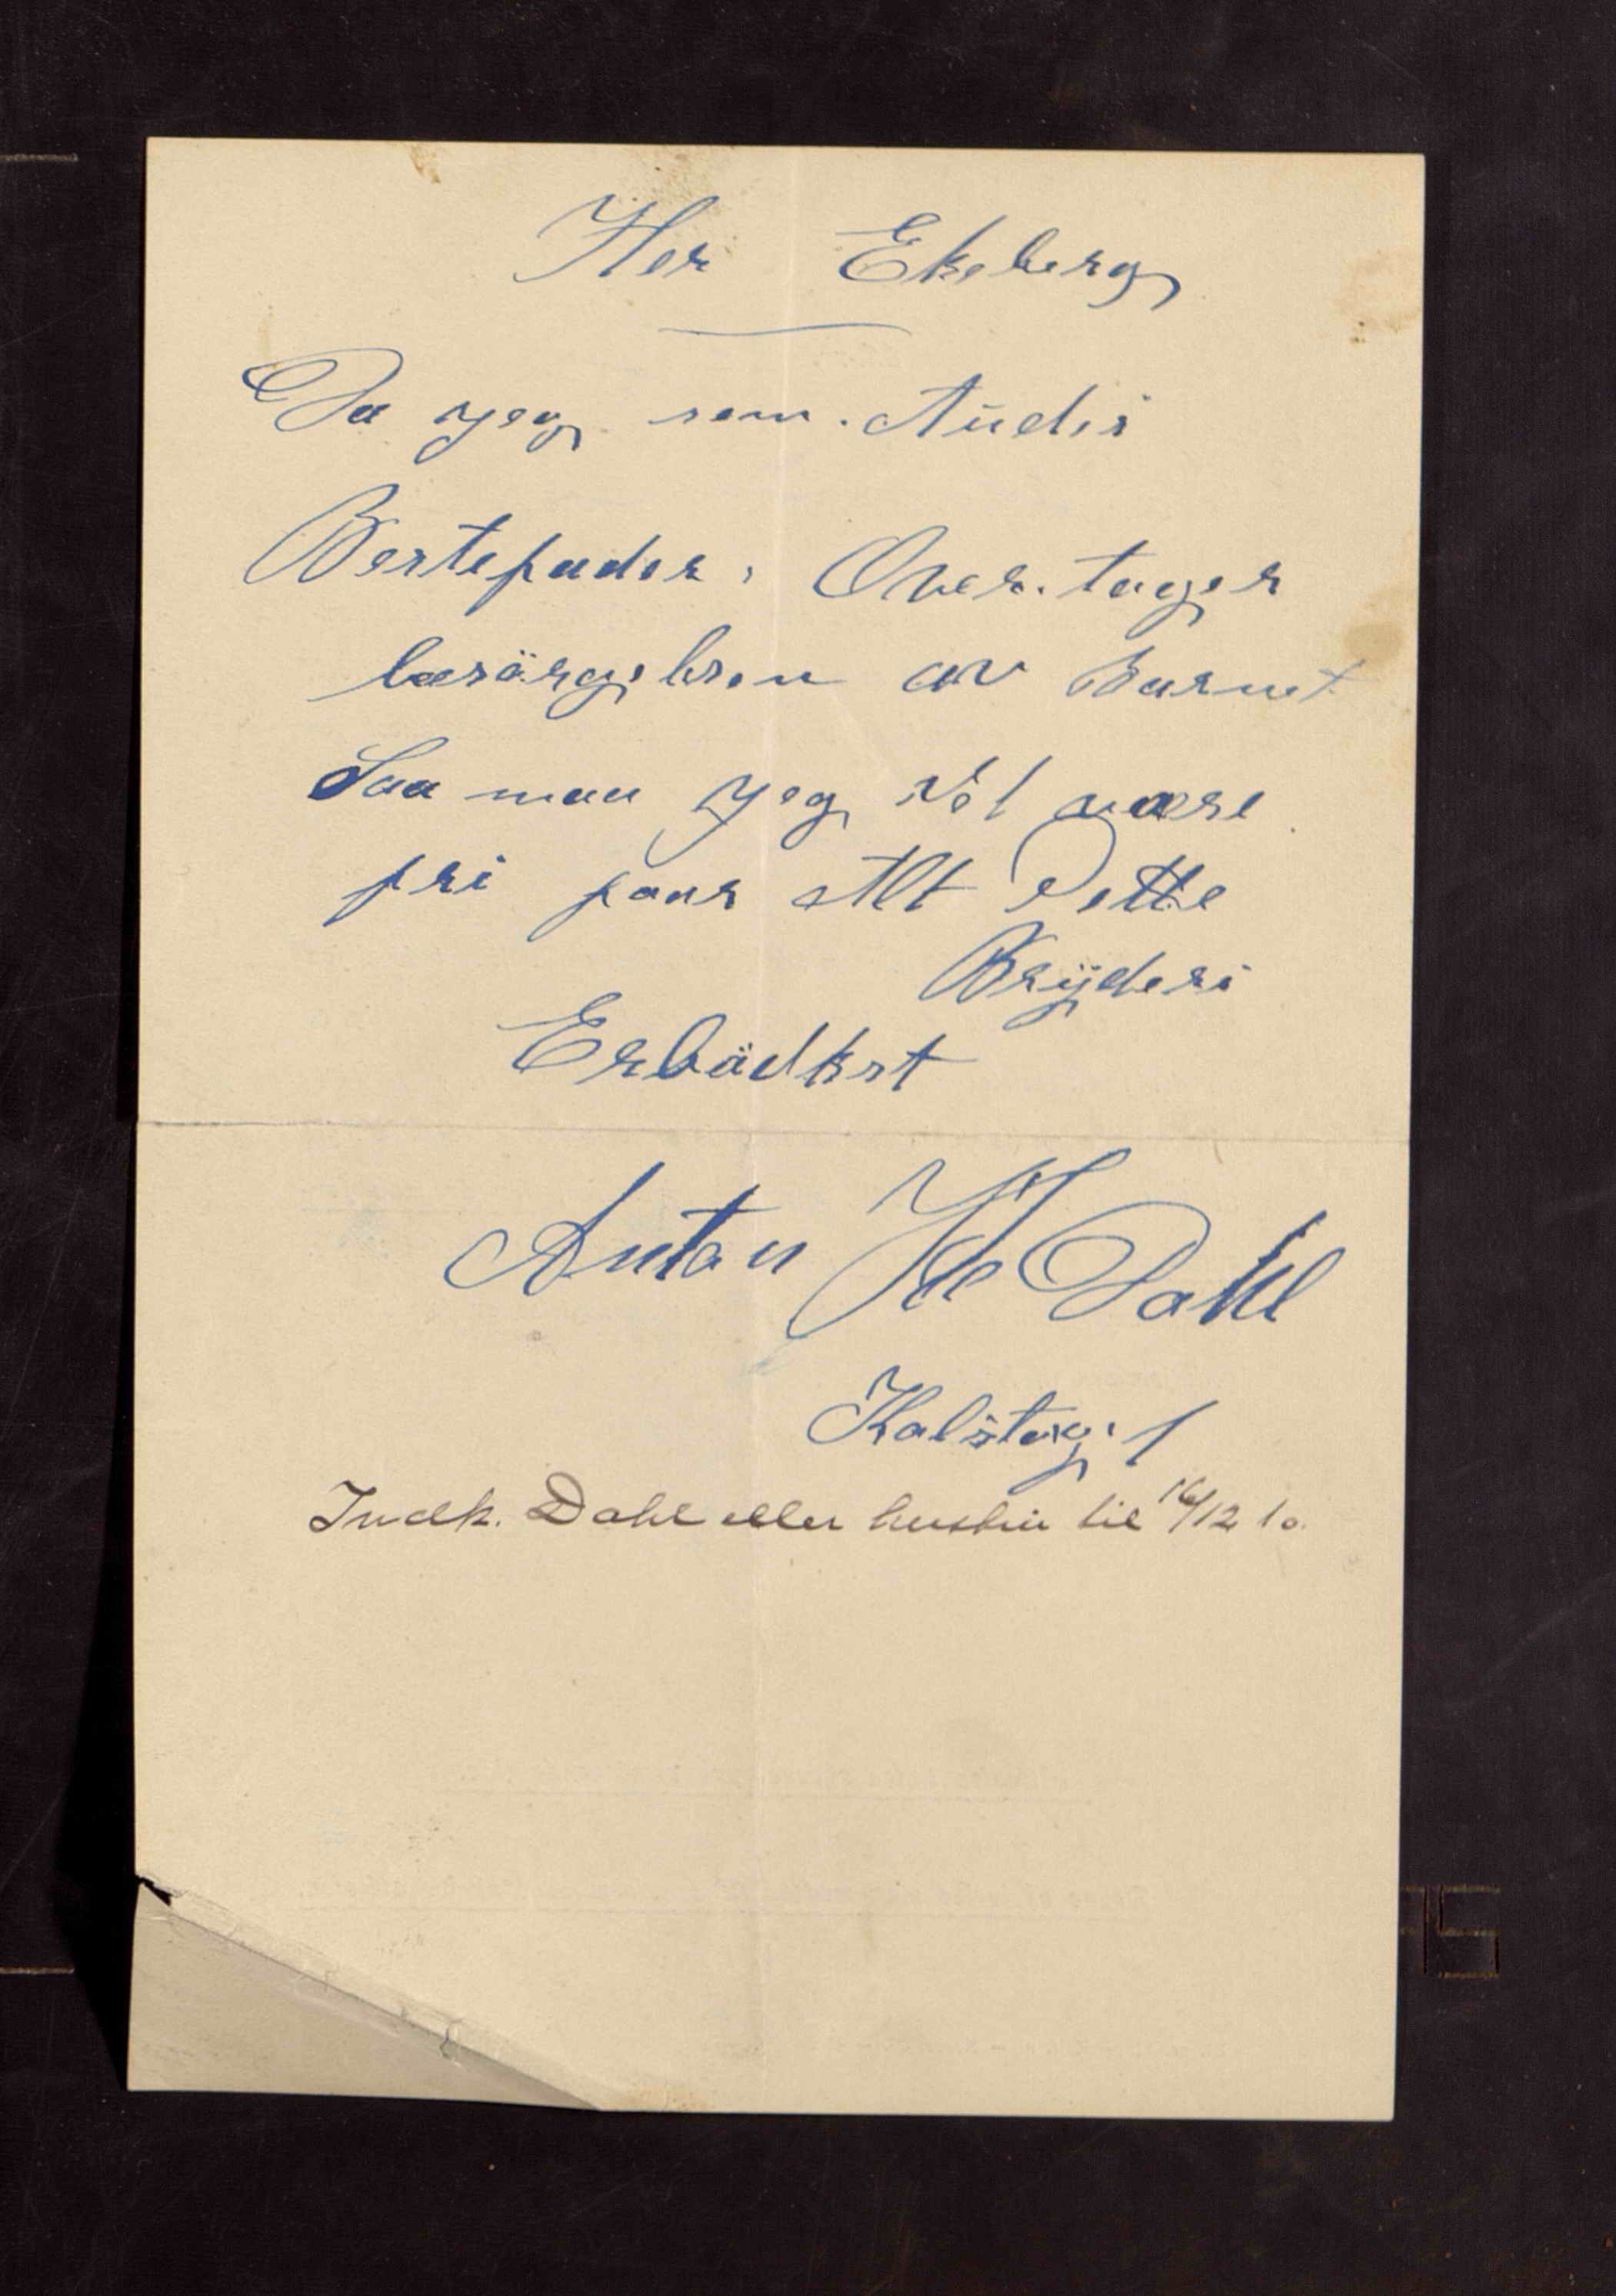 Her Ekeberg
Da jeg som. Audis
Bestefader, Over. tager
besörgelsen av Barnet
Saa maa jeg vel være
fri faar Alt Dette
Bryderi
Erbödikst
Anton H Dahl
Kalstarg. 1
Indk. Dahl eller hustru til 16/12 10.